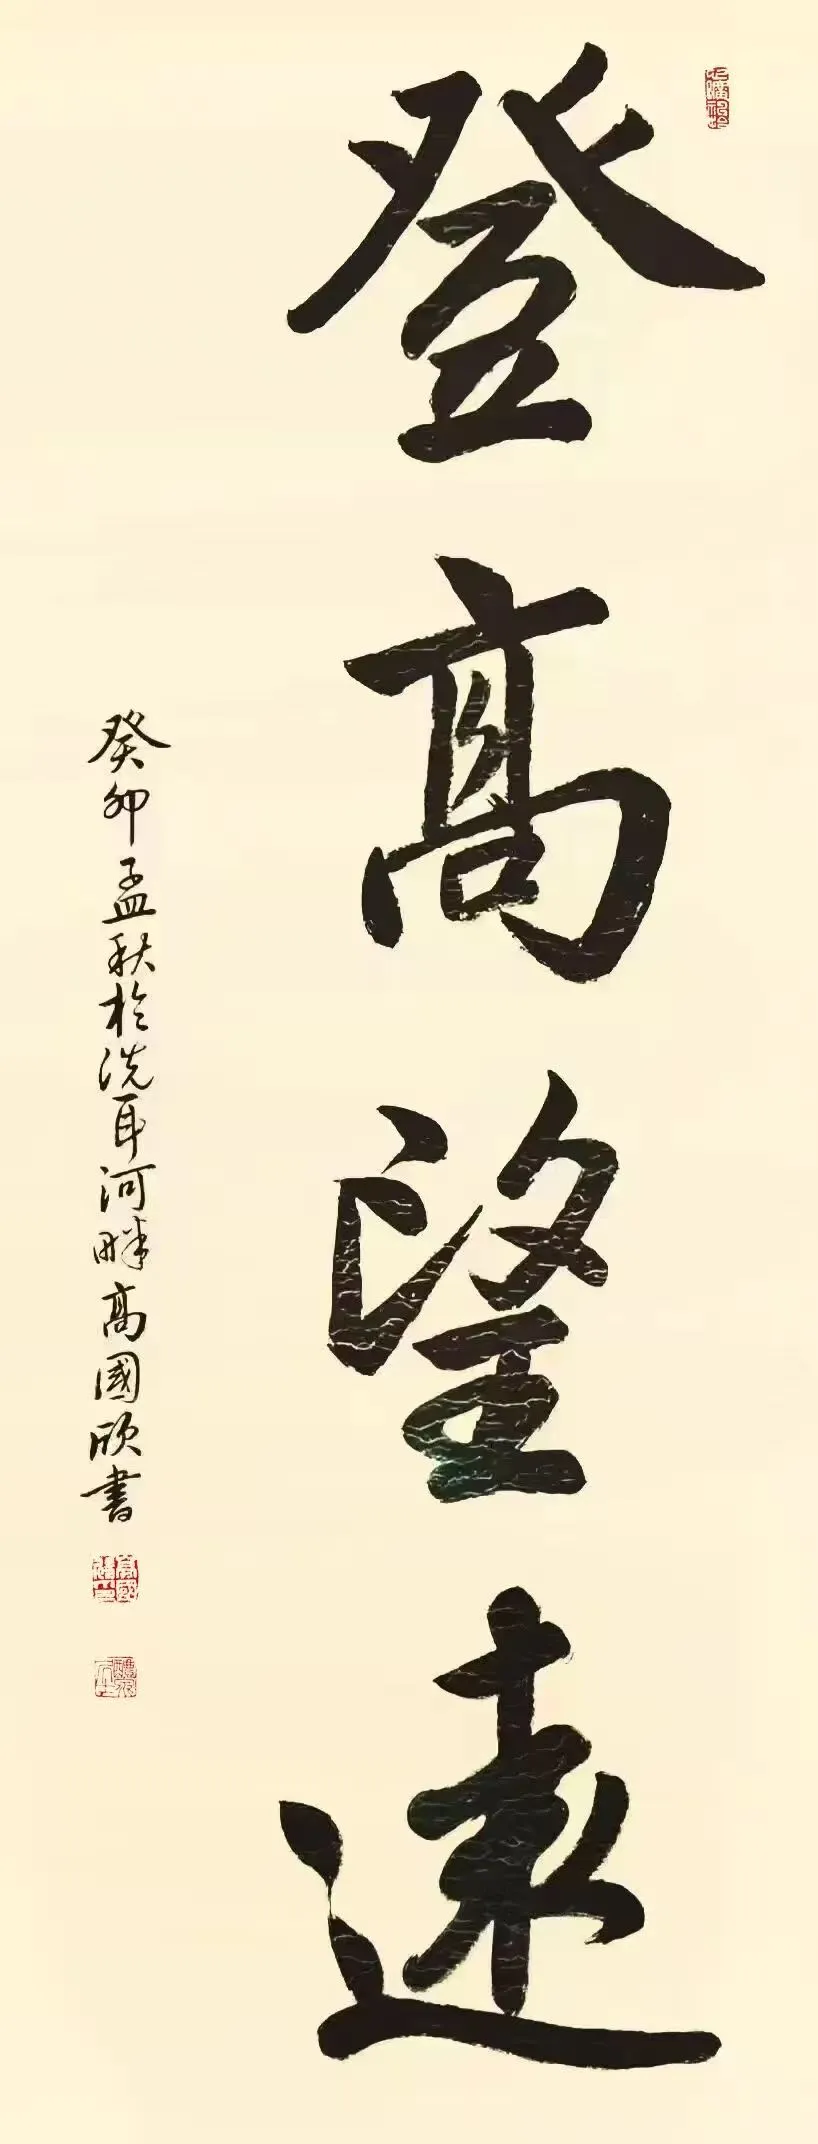 登高望遠
癸卯孟秋於洗耳河畔高國欣書